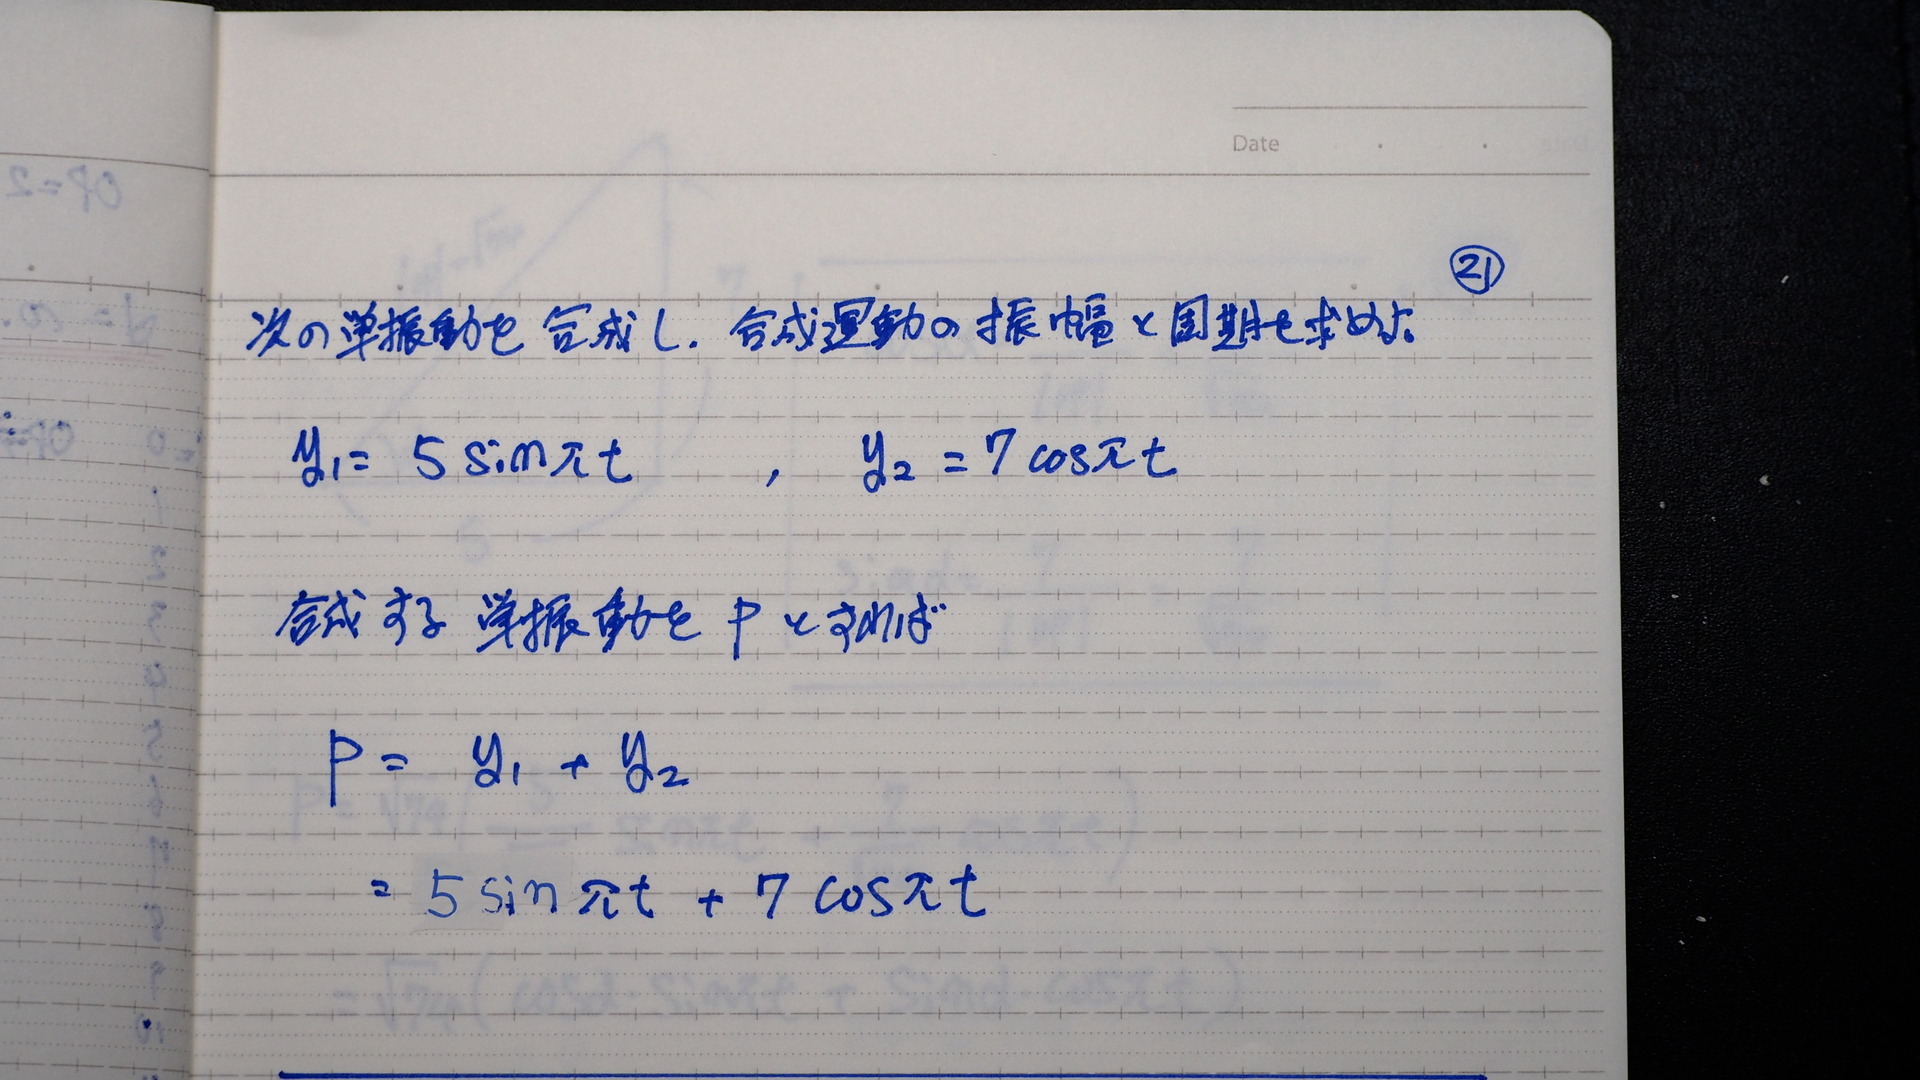 Date
㉑
次の単振動を合成し、合成運動の振幅と周期を求めよ。
y₁= 5 sin πt , y₂ = 7 cos πt
合成する単振動を P とすれば
P = y₁ + y₂
= 5 sin πt + 7 cos πt
OP=2